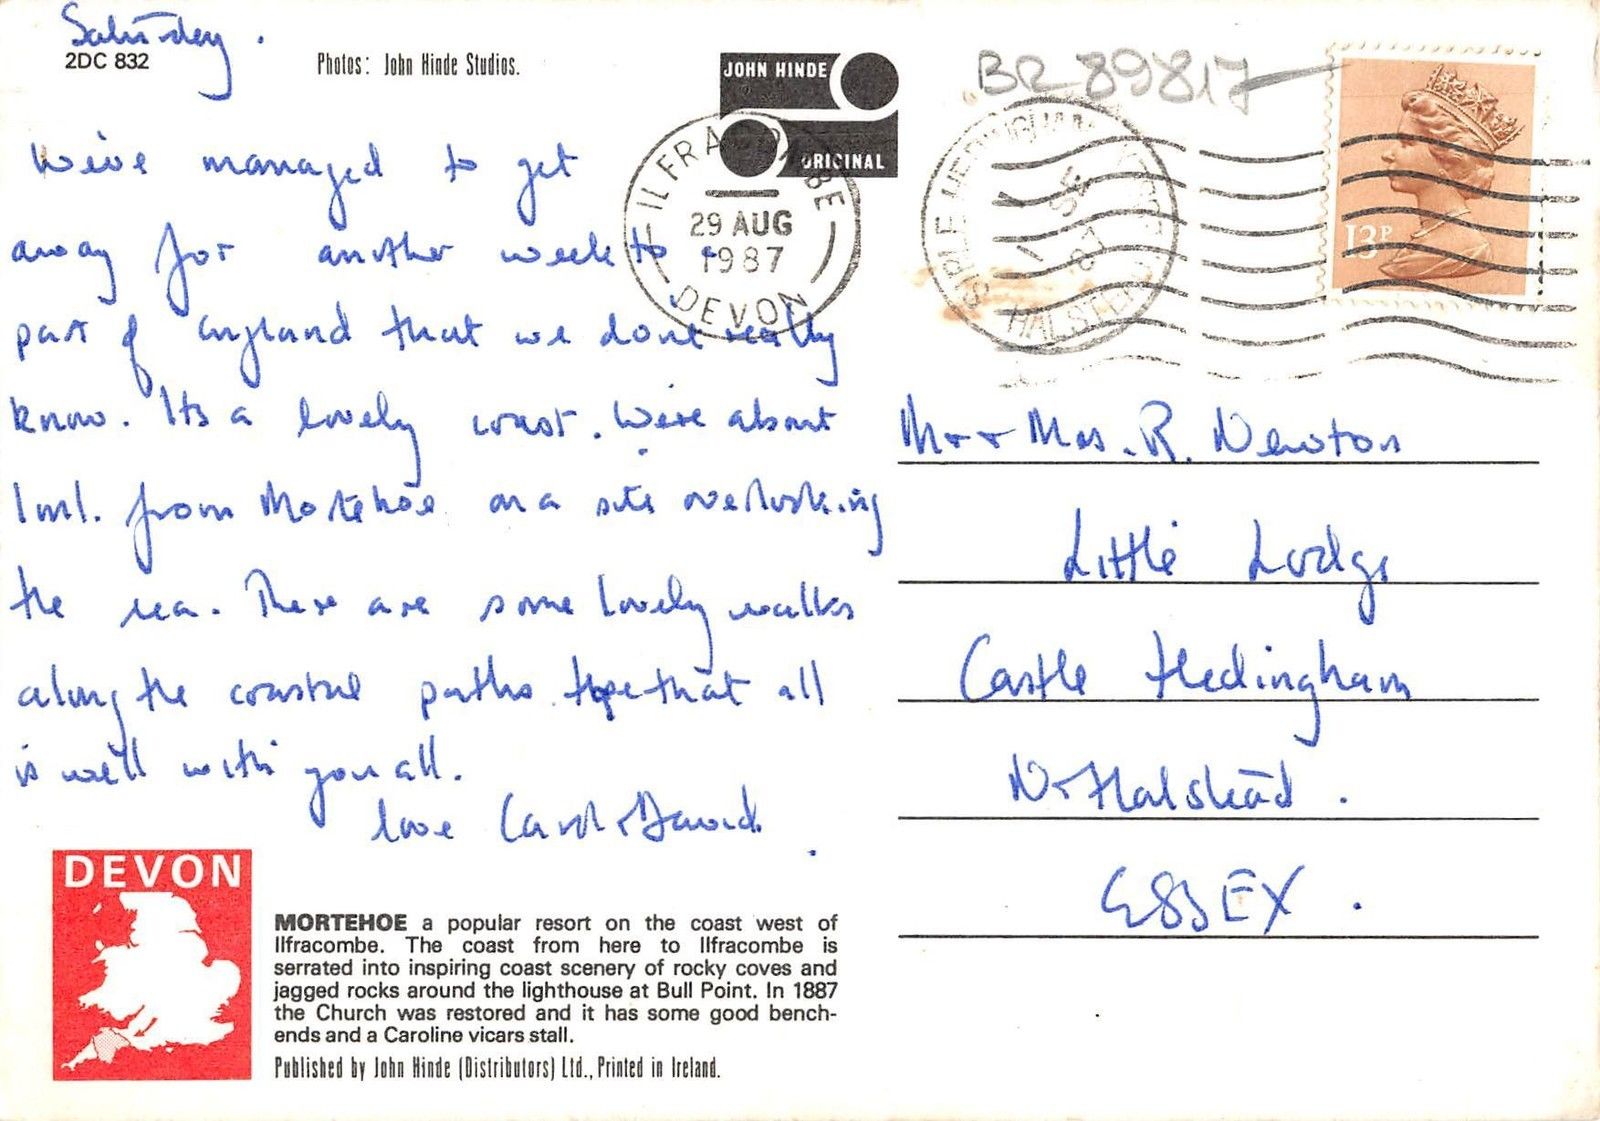 Saturday.
2DC 832
Photos: John Hinde Studios.
JOHN HINDE
ORIGINAL
BR 89817
ILFRACOMBE
29 AUG
1987
DEVON
SIBLE HEDINGHAM
1 SE
87
HALSTEAD
13P
We've managed to get
away for another week to a
part of england that we dont really
know. Its a lovely coast. We're about
1ml. from Mortehoe on a site overlooking
the sea. There are some lovely walks
along the coastal paths. Hope that all
is well with you all.
love Carol + David.
Mr + Mrs. R. Newton
Little Lodge
Castle Hedingham
Nr Halstead.
ESSEX.
DEVON
MORTEHOE a popular resort on the coast west of
Ilfracombe. The coast from here to Ilfracombe is
serrated into inspiring coast scenery of rocky coves and
jagged rocks around the lighthouse at Bull Point. In 1887
the Church was restored and it has some good bench-
ends and a Caroline vicars stall.
Published by John Hinde (Distributors) Ltd., Printed in Ireland.